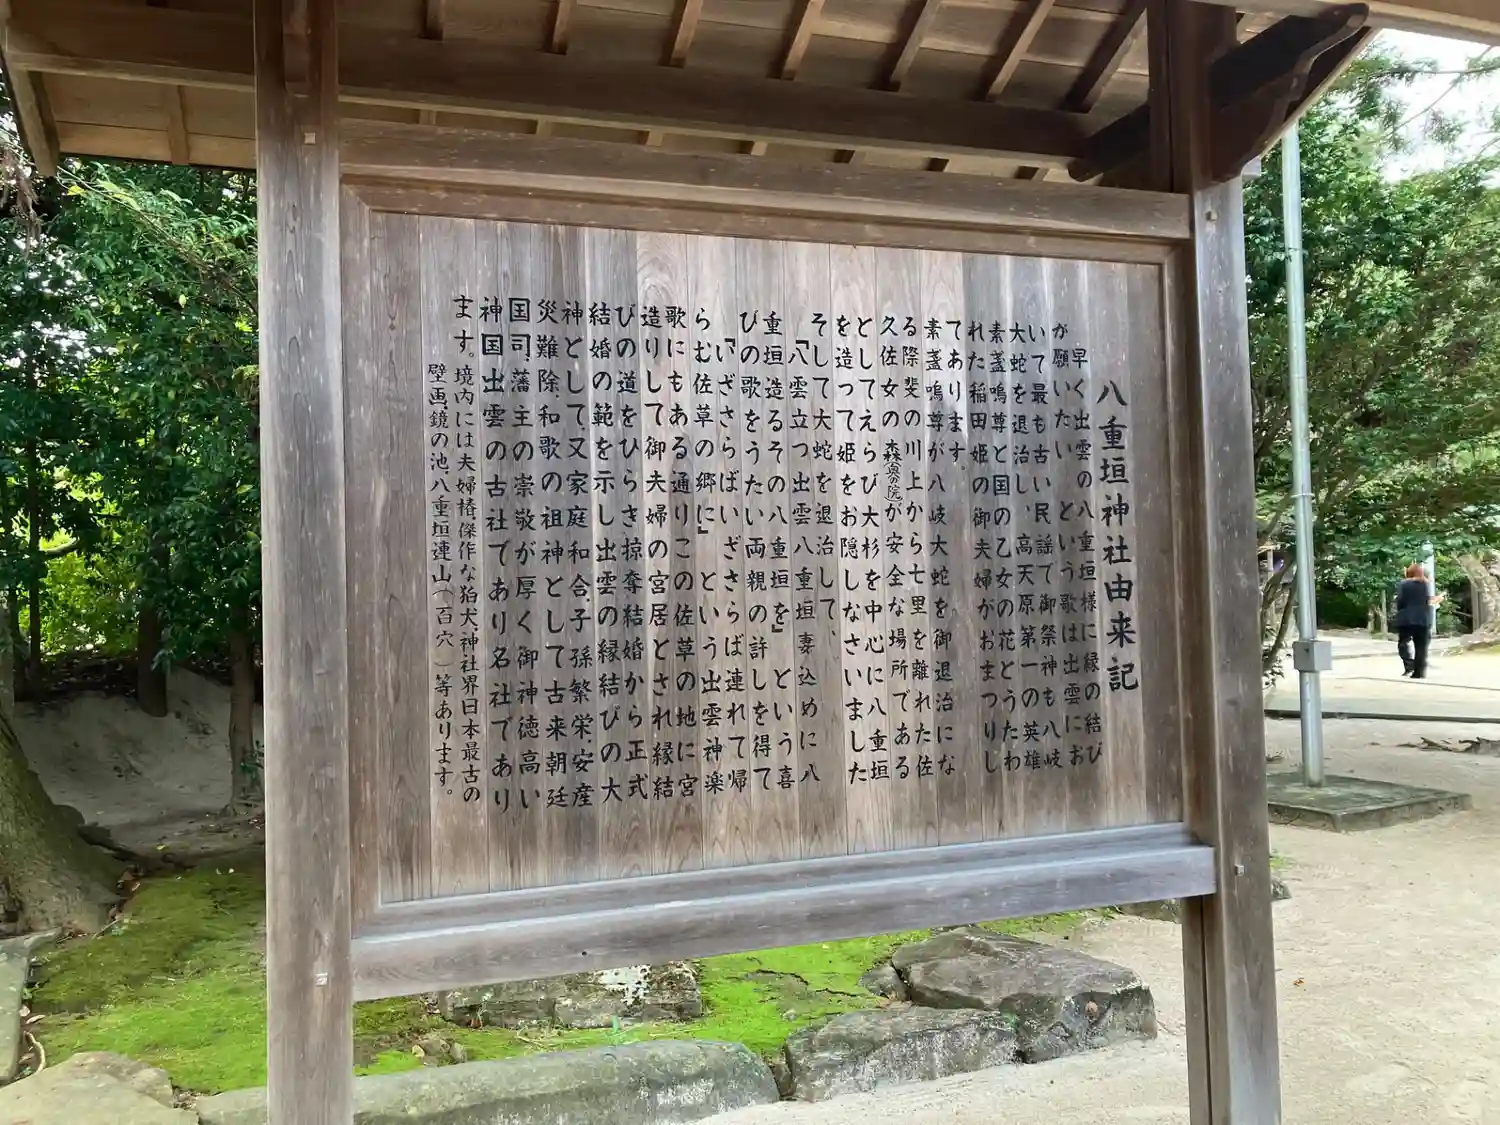 八重垣神社由来記
早く出雲の八重垣様に縁の結び
が願いたい という歌は出雲にお
いて最も古い民謡で御祭神も八岐
大蛇を退治し、高天原第一の英雄
素盞嗚尊と国の乙女の花とうたわ
れた稲田姫の御夫婦がおまつりし
てあります。
素盞嗚尊が八岐大蛇を御退治にな
る際斐の川上から七里を離れた佐
久佐女の森(奥の院)が安全な場所である
としてえらび大杉を中心に八重垣
を造って姫をお隠しなさいました
そして大蛇を退治して、
『八雲立つ出雲八重垣妻込めに八
重垣造るその八重垣を』 という喜
びの歌をうたい両親の許しを得て
『いざさらばいざさらば連れて帰
らむ佐草の郷に』 という出雲神楽
歌にもある通りこの佐草の地に宮
造りして御夫婦の宮居とされ縁結
びの道をひらき掠奪結婚から正式
結婚の範を示し出雲の縁結びの大
神として、又家庭和合、子孫繁栄、安産
災難除、和歌の祖神として古来朝廷
国司、藩主の崇敬が厚く御神徳高い
神国出雲の古社であり名社であり
ます。境内には夫婦椿傑作な狛犬、神社界日本最古の
壁画、鏡の池、八重垣連山(百穴)等あります。